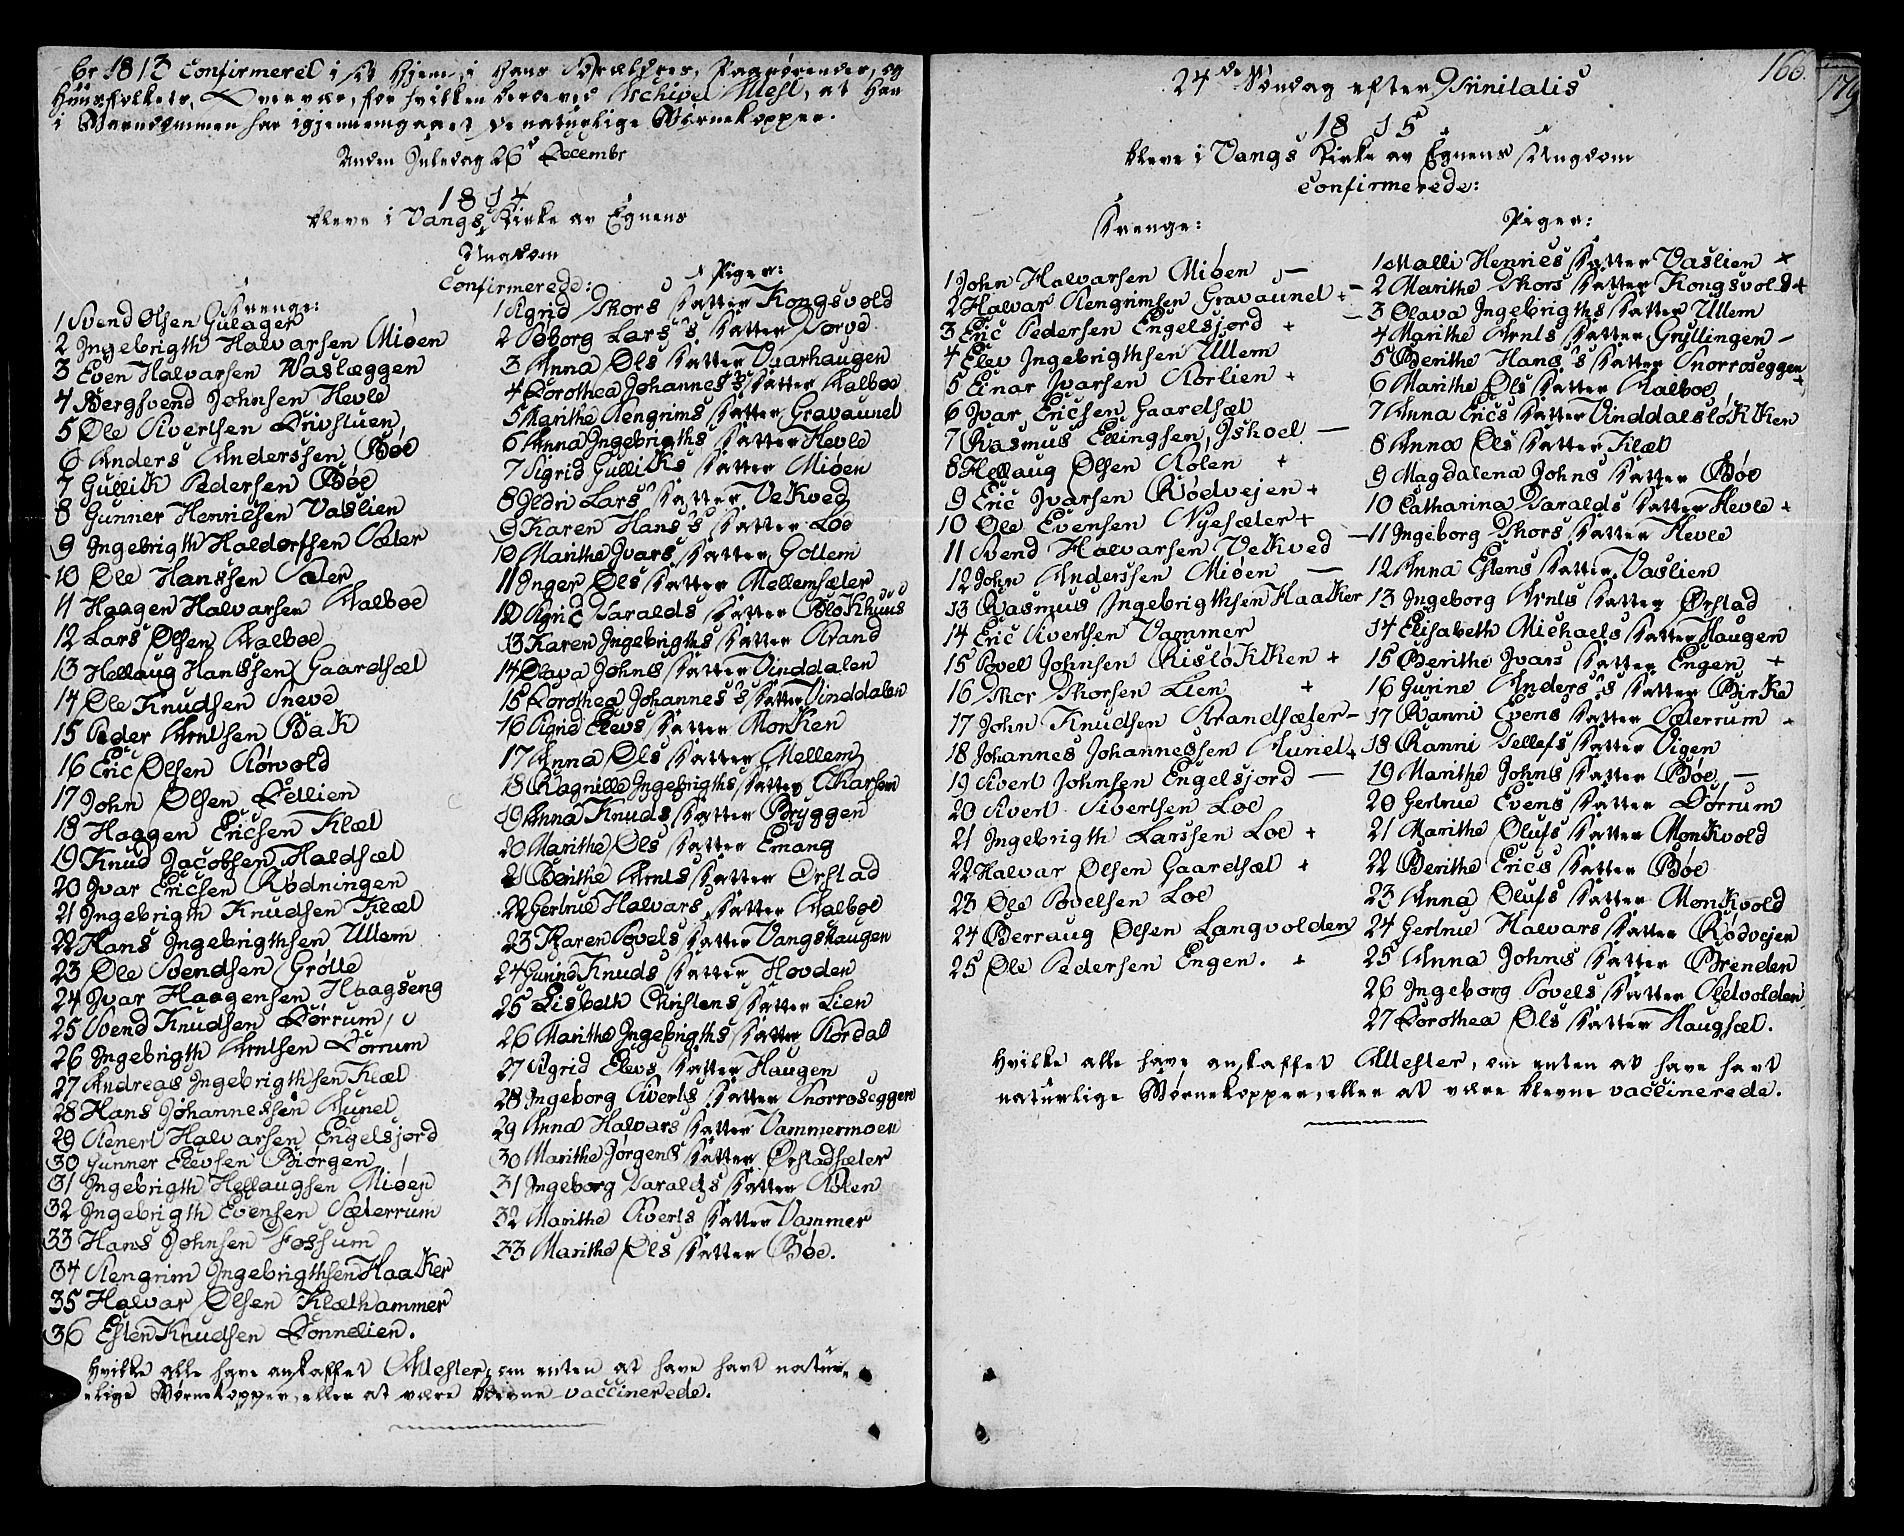 br 1813 Confirmeret i sit Hjem, i Hans Forældres, Paarørendes, og
Huusfolkets, Overvær, for hvilken beroe ved Archivet Attest, at Han
i Barndommen har igjennemgaaet de naturlige Børnekopper.
Anden Juledag 26d Decembr
1814
bleve i Vangs Kirke av Egnens
Ungdom
Confirmerede:
Drenge:
1 Svend Olsen Gulager
2 Ingebrigth Halvarsen Miøen
3 Even Halvarsen Vaslæggen
4 Bergsvend Johnsen Hevle
5 Ole Sivertsen Drivstuen,
6 Anders Anderssen Bøe
7 Gullik Pedersen Bøe
8 Gunner Henricsen Vaslien
9 Ingebrigth Haldorssen Sæter
10 Ole Hanssen Sæter
11 Haagen Halvarsen Aalboe
12 Lars Olsen Aalboe
13 Hellaug Hanssen Gaardsæt
14 Ole Knudsen Sneve
15 Peder Arntsen Bak
16 Eric Olsen Rørvold
17 John Olsen Detlien
18 Haagen Ericsen Klæt
19 Knud Jacobsen Haldsæt
20 Ivar Ericsen Rødningen
21 Ingebrigth Knudsen Klæt
22 Hans Ingebrigthsen Ullem
23 Ole Svendsen Grøtte
24 Ivar Haagensen Haagseng
25 Svend Knudsen Dørrum
26 Ingebrigth Arntsen Dørrum
27 Andreas Ingebrigthsen Klæt
28 Hans Johannessen Aunet
29 Renert Halvarsen Engelsjord
30 Gunner Elevsen Biørgen
31 Ingebrigth Hellaugsen Miøen
32 Ingebrigth Evensen Sæterrum
33 Hans Johnsen Fossum
34 Rengrim Ingebrigthsen Haaker
35 Halvar Olsen Klæthammer
36 Esten Knudsen Donnelien.
Piger:
1 Sigrid Thors Datter Kongsvold
2 Boborg Lars's Datter Torve
3 Anna Ols Datter Vaarhaugen
4 Dorothea Johannes's Datter Aalboe
5 Marithe Rengrims Datter Gravaunet
6 Anna Ingebrigths Datter Hevle
7 Sigrid Gulliks Datter Miøen
8 Ildri Lars's Datter Vekved
9 Karen Hans's Datter Loe
10 Marithe Ivars Datter Gottem
11 Inger Ols Datter Mellemsæter
12 Sigrid Taralds Datter Blokhuus
13 Karen Ingebrigths Datter Strand
14 Olava Johns Datter Vinddalen
15 Dorothea Johannes's Datter Vinddalen
16 Sigrid Elevs Datter Monken
17 Anna Ols Datter Mellem
18 Ragnille Ingebrigths Datter Aharsem
19 Anna Knuds Datter Bryggen
20 Marithe Ols Datter Emang
21 Berithe Arnts Datter Ørstad
22 Gertrue Halvars Datter Aalboe
23 Karen Povels Datter Vangshaugen
24 Gurine Knuds Datter Hovden
25 Lisbeth Christens Datter Lien
26 Marithe Ingebrigths Datter Rordal
27 Sigrid Elevs Datter Haugen
28 Ingeborg Siverts Datter Snorroseggen
29 Anna Halvars Datter Vammermoen
30 Marithe Jørgens Datter Ørstadsæter
31 Ingeborg Taralds Datter Rolen
32 Marithe Siverts Datter Vammer
33 Marithe Ols Datter Bøe.
Hvilke alle have anskaffet Attester, om enten at have havt natur-
elige Børnekopper, eller at være blevne vaccinerede.
166.
179
24de Søndag efter Trinitatis
1815
bleve i Vangs Kirke av Egnens Ungdom
Confirmerede:
Drenge:
1 John Halvarsen Miøen —
2 Halvar Rengrimsen Gravaunet +
3 Eric Pedersen Engelsjord +
4 Elev Ingebrigthsen Ullem
5 Einar Ivarsen Rorlien +
6 Ivar Ericsen Gaardsæt
7 Rasmus Ellingsen Ishoel —
8 Hellaug Olsen Rolen +
9 Eric Ivarsen Rødvejen +
10 Ole Evensen Nyesæter +
11 Svend Halvarsen Vekved —
12 John Anderssen Miøen —
13 Rasmus Ingebrigthsen Haaker
14 Eric Sivertsen Vammer
15 Povel Johnsen Risløkken +
16 Thor Thorsen Lien +
17 John Knudsen Strandsæter —
18 Johannes Johannessen Aunet +
19 Sivert Johnsen Engelsjord —
20 Sivert Sivertsen Loe
21 Ingebrigth Larssen Loe +
22 Halvar Olsen Gaardsæt +
23 Ole Povelsen Loe
24 Berraug Olsen Langvolden
25 Ole Pedersen Engen. +
Piger:
1 Malli Henrics Datter Vaslien +
2 Marithe Thors Datter Kongsvold +
3 Olava Ingebrigths Datter Ullem
4 Marithe Arnts Datter Gryllingen —
5 Berithe Hans's Datter Snorroseggen +
6 Marithe Ols Datter Aalboe
7 Anna Erics Datter Vinddalsløkken
8 Anna Ols Datter Klæt
9 Magdalena Johns Datter Bøe
10 Catharina Taralds Datter Hevle +
11 Ingeborg Thors Datter Hevle
12 Anna Estens Datter Vaslien
13 Ingeborg Arnts Datter Ørstad
14 Elisabeth Michaels Datter Haugen
15 Berithe Ivars Datter Engen +
16 Gurine Anders's Datter Birke
17 Ranni Evens Datter Sæterrum +
18 Ranni Tellefs Datter Vigen
19 Marithe Johns Datter Bøe —
20 Gertrue Evens Datter Dørrum
21 Marithe Olufs Datter Monkvold
22 Berithe Erics Datter Bøe
23 Anna Olufs Datter Monkvold
24 Gertrue Halvars Datter Rødvejen
25 Anna Johns Datter Brenden
26 Ingeborg Povels Datter Sletvolden
27 Dorothea Ols Datter Haugsæt.
Hvilke alle have anskaffet Attester, om enten at have havt
naturlige Børnekopper, eller at være blevne vaccinerede.